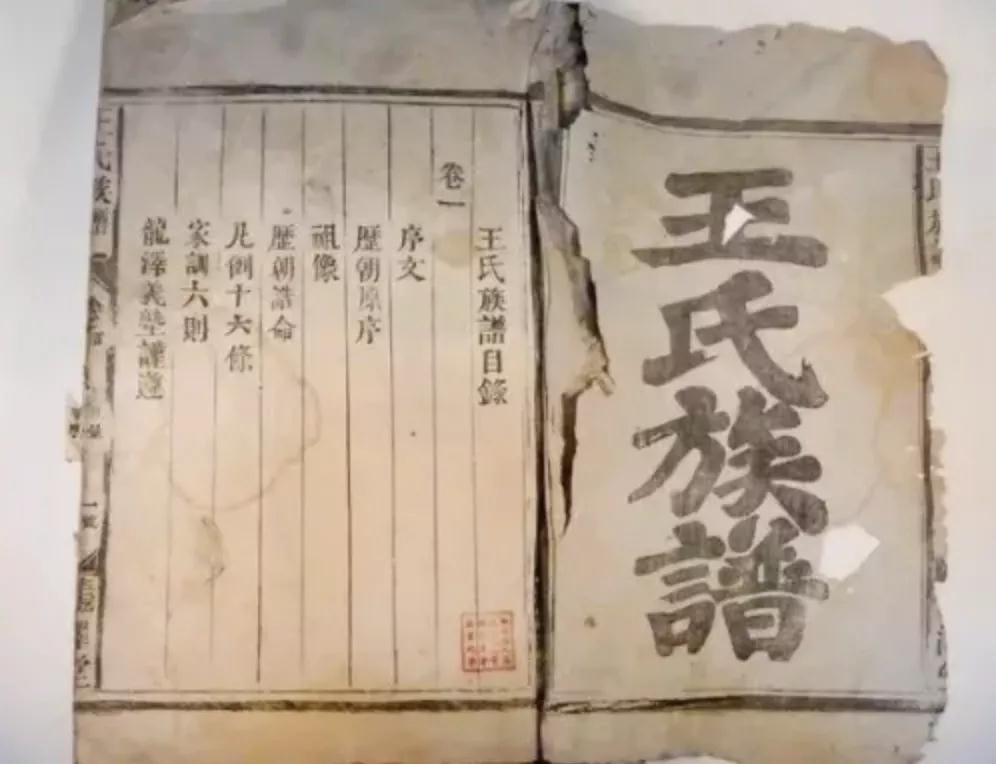 王氏族譜
王氏族譜目錄
卷一
序文
歷朝原序
祖像
歷朝誥命
凡例十六條
家訓六則
龍潭義塾謹遵
王氏族譜